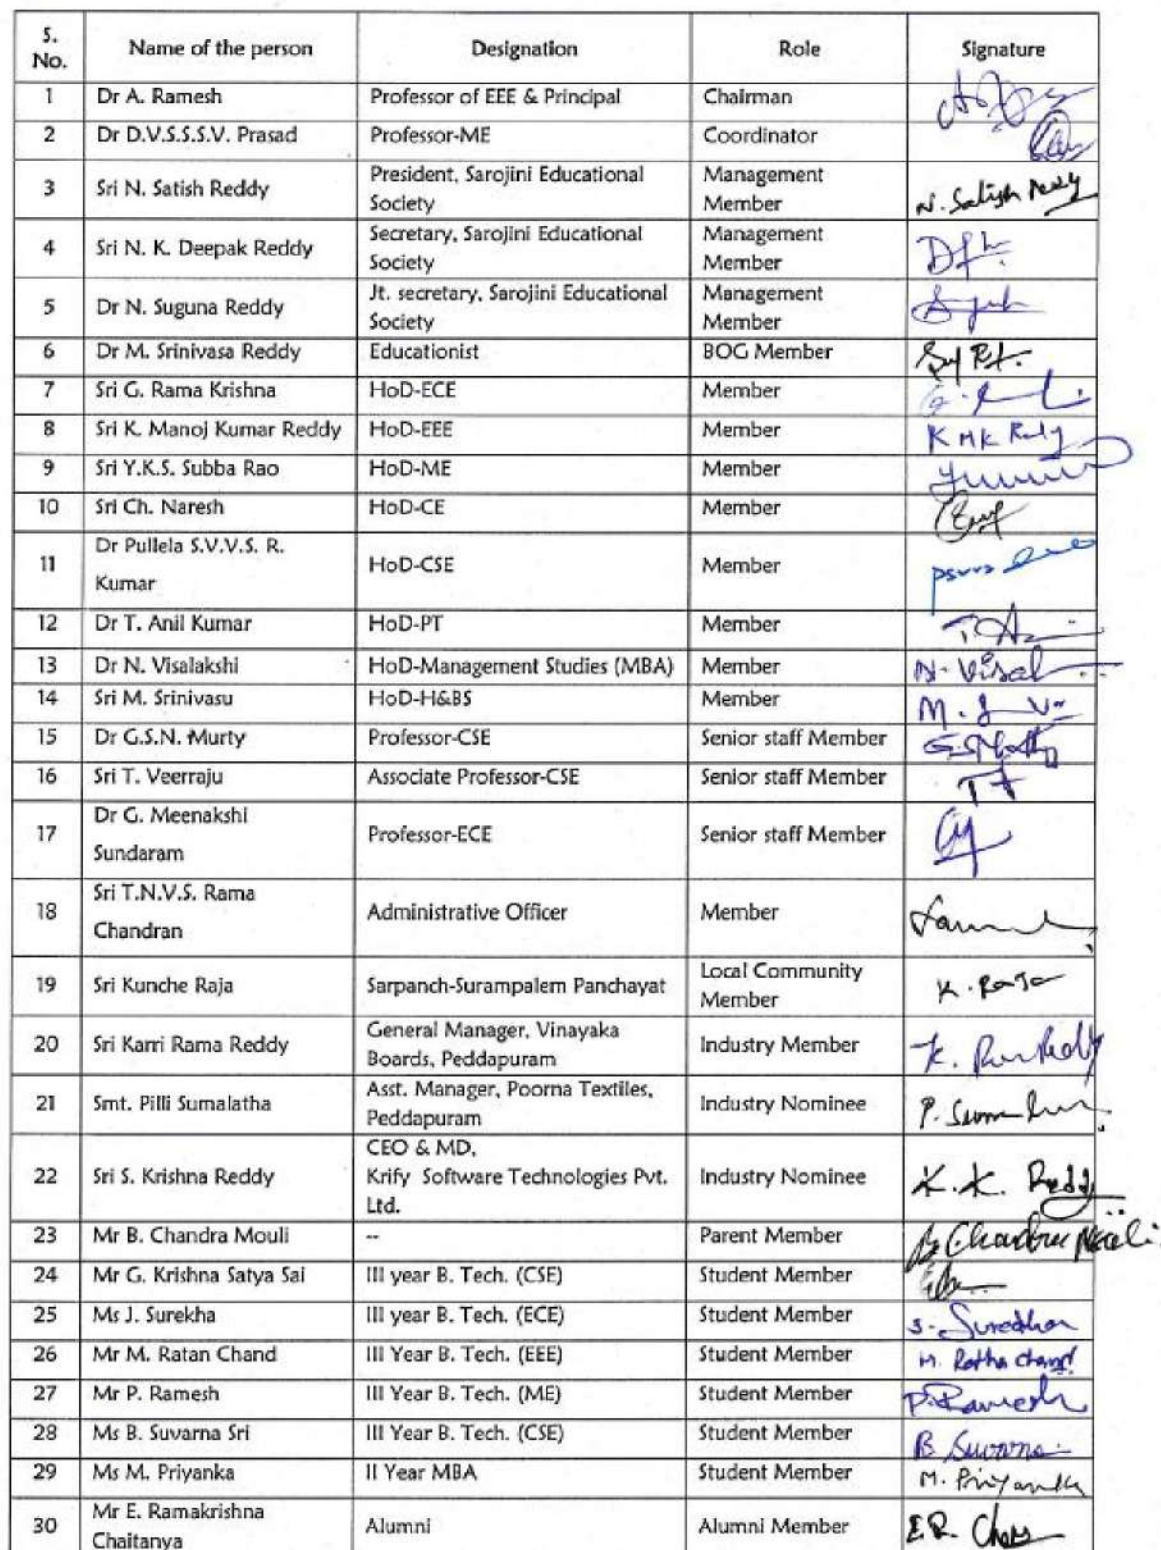 S. No. Name of the person Designation Role Signature
1 Dr A. Ramesh Professor of EEE & Principal Chairman
2 Dr D.V.S.S.S.V. Prasad Professor-ME Coordinator
3 Sri N. Satish Reddy President, Sarojini Educational Society Management Member N. Satish Reddy
4 Sri N. K. Deepak Reddy Secretary, Sarojini Educational Society Management Member
5 Dr N. Suguna Reddy Jt. secretary, Sarojini Educational Society Management Member
6 Dr M. Srinivasa Reddy Educationist BOG Member
7 Sri G. Rama Krishna HoD-ECE Member
8 Sri K. Manoj Kumar Reddy HoD-EEE Member K MK Reddy
9 Sri Y.K.S. Subba Rao HoD-ME Member
10 Sri Ch. Naresh HoD-CE Member
11 Dr Pullela S.V.V.S. R. Kumar HoD-CSE Member
12 Dr T. Anil Kumar HoD-PT Member
13 Dr N. Visalakshi HoD-Management Studies (MBA) Member N. Visal
14 Sri M. Srinivasu HoD-H&BS Member
15 Dr G.S.N. Murty Professor-CSE Senior staff Member
16 Sri T. Veerraju Associate Professor-CSE Senior staff Member
17 Dr G. Meenakshi Sundaram Professor-ECE Senior staff Member
18 Sri T.N.V.S. Rama Chandran Administrative Officer Member
19 Sri Kunche Raja Sarpanch-Surampalem Panchayat Local Community Member K. Raja
20 Sri Karri Rama Reddy General Manager, Vinayaka Boards, Peddapuram Industry Member
21 Smt. Pilli Sumalatha Asst. Manager, Poorna Textiles, Peddapuram Industry Nominee
22 Sri S. Krishna Reddy CEO & MD, Krify Software Technologies Pvt. Ltd. Industry Nominee K. K. Reddy
23 Mr B. Chandra Mouli -- Parent Member B Chandra Mouli
24 Mr G. Krishna Satya Sai III year B. Tech. (CSE) Student Member
25 Ms J. Surekha III year B. Tech. (ECE) Student Member J. Surekha
26 Mr M. Ratan Chand III Year B. Tech. (EEE) Student Member M. Ratha chand
27 Mr P. Ramesh III Year B. Tech. (ME) Student Member P. Ramesh
28 Ms B. Suvarna Sri III Year B. Tech. (CSE) Student Member B. Suvarna
29 Ms M. Priyanka II Year MBA Student Member M. Priyanka
30 Mr E. Ramakrishna Chaitanya Alumni Alumni Member E.R.